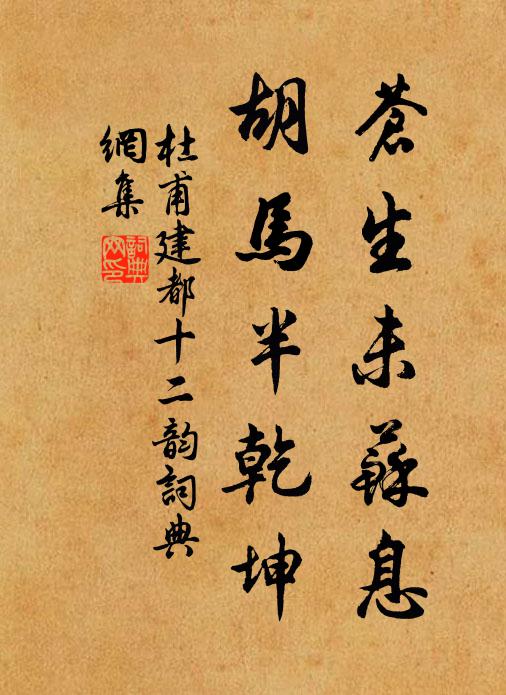 蒼生未蘇息
胡馬半乾坤
杜甫建都十二韵詞典
網集
詞典
网印